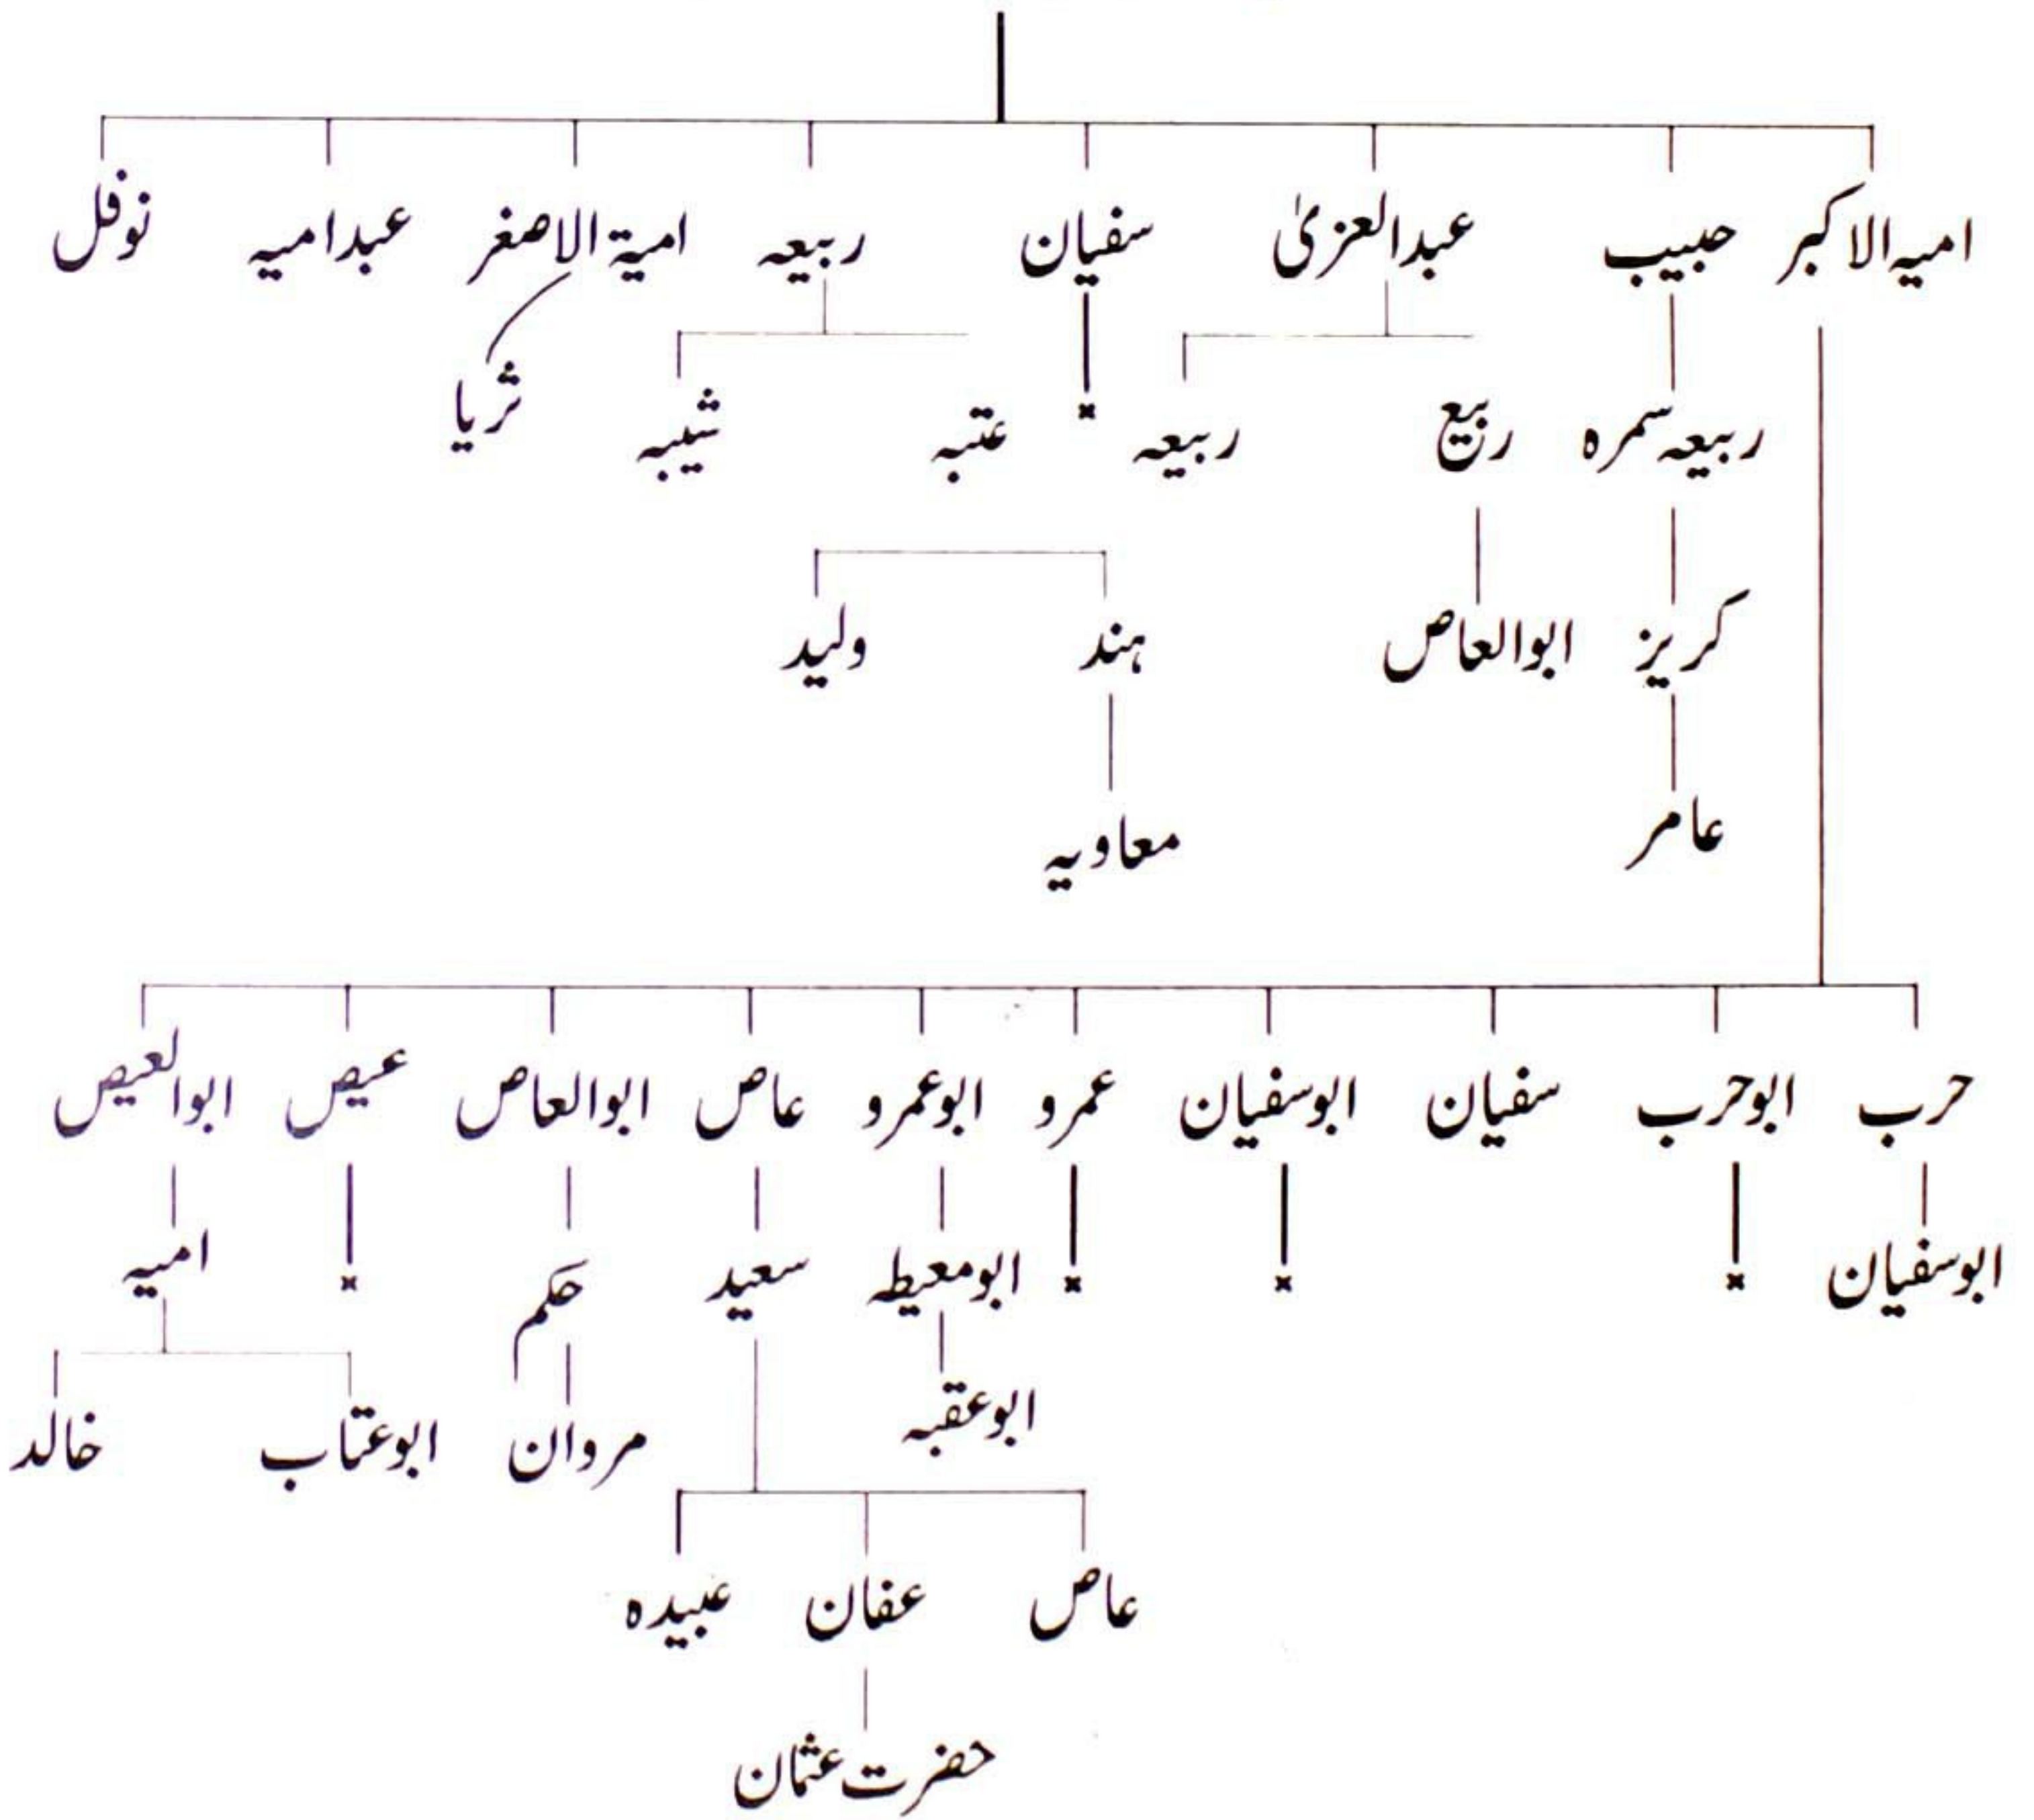 امیہ الاکبر حبیب عبدالعزیٰ سفیان ربیعہ امیۃ الاصغر عبدامیہ نوفل
ربیعہ سمرہ ربیع ربیعہ × عتبہ شیبہ ثریا
کریز ابوالعاص ہند ولید
عامر معاویہ
حرب ابوحرب سفیان ابوسفیان عمرو ابوعمرو عاص ابوالعاص عیص ابوالعیص
ابوسفیان × × × ابومعیطہ سعید حکم × امیہ
ابوعقبہ مروان ابوعتاب خالد
عاص عفان عبیدہ
حضرت عثمان